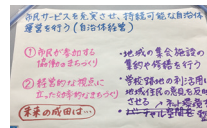 市民サービスを充実させ、持続可能な自治体
運営を行う(自治体経営)
①市民が参加する
協働のまちづくり
②経営的な視点に
立った効率的なまちづくり
未来の成田は…
・地域の集会施設の
集約や修繕を行う
・学校跡地の利活用に
地域住民の意見を反映
させる
バーチャル空間を